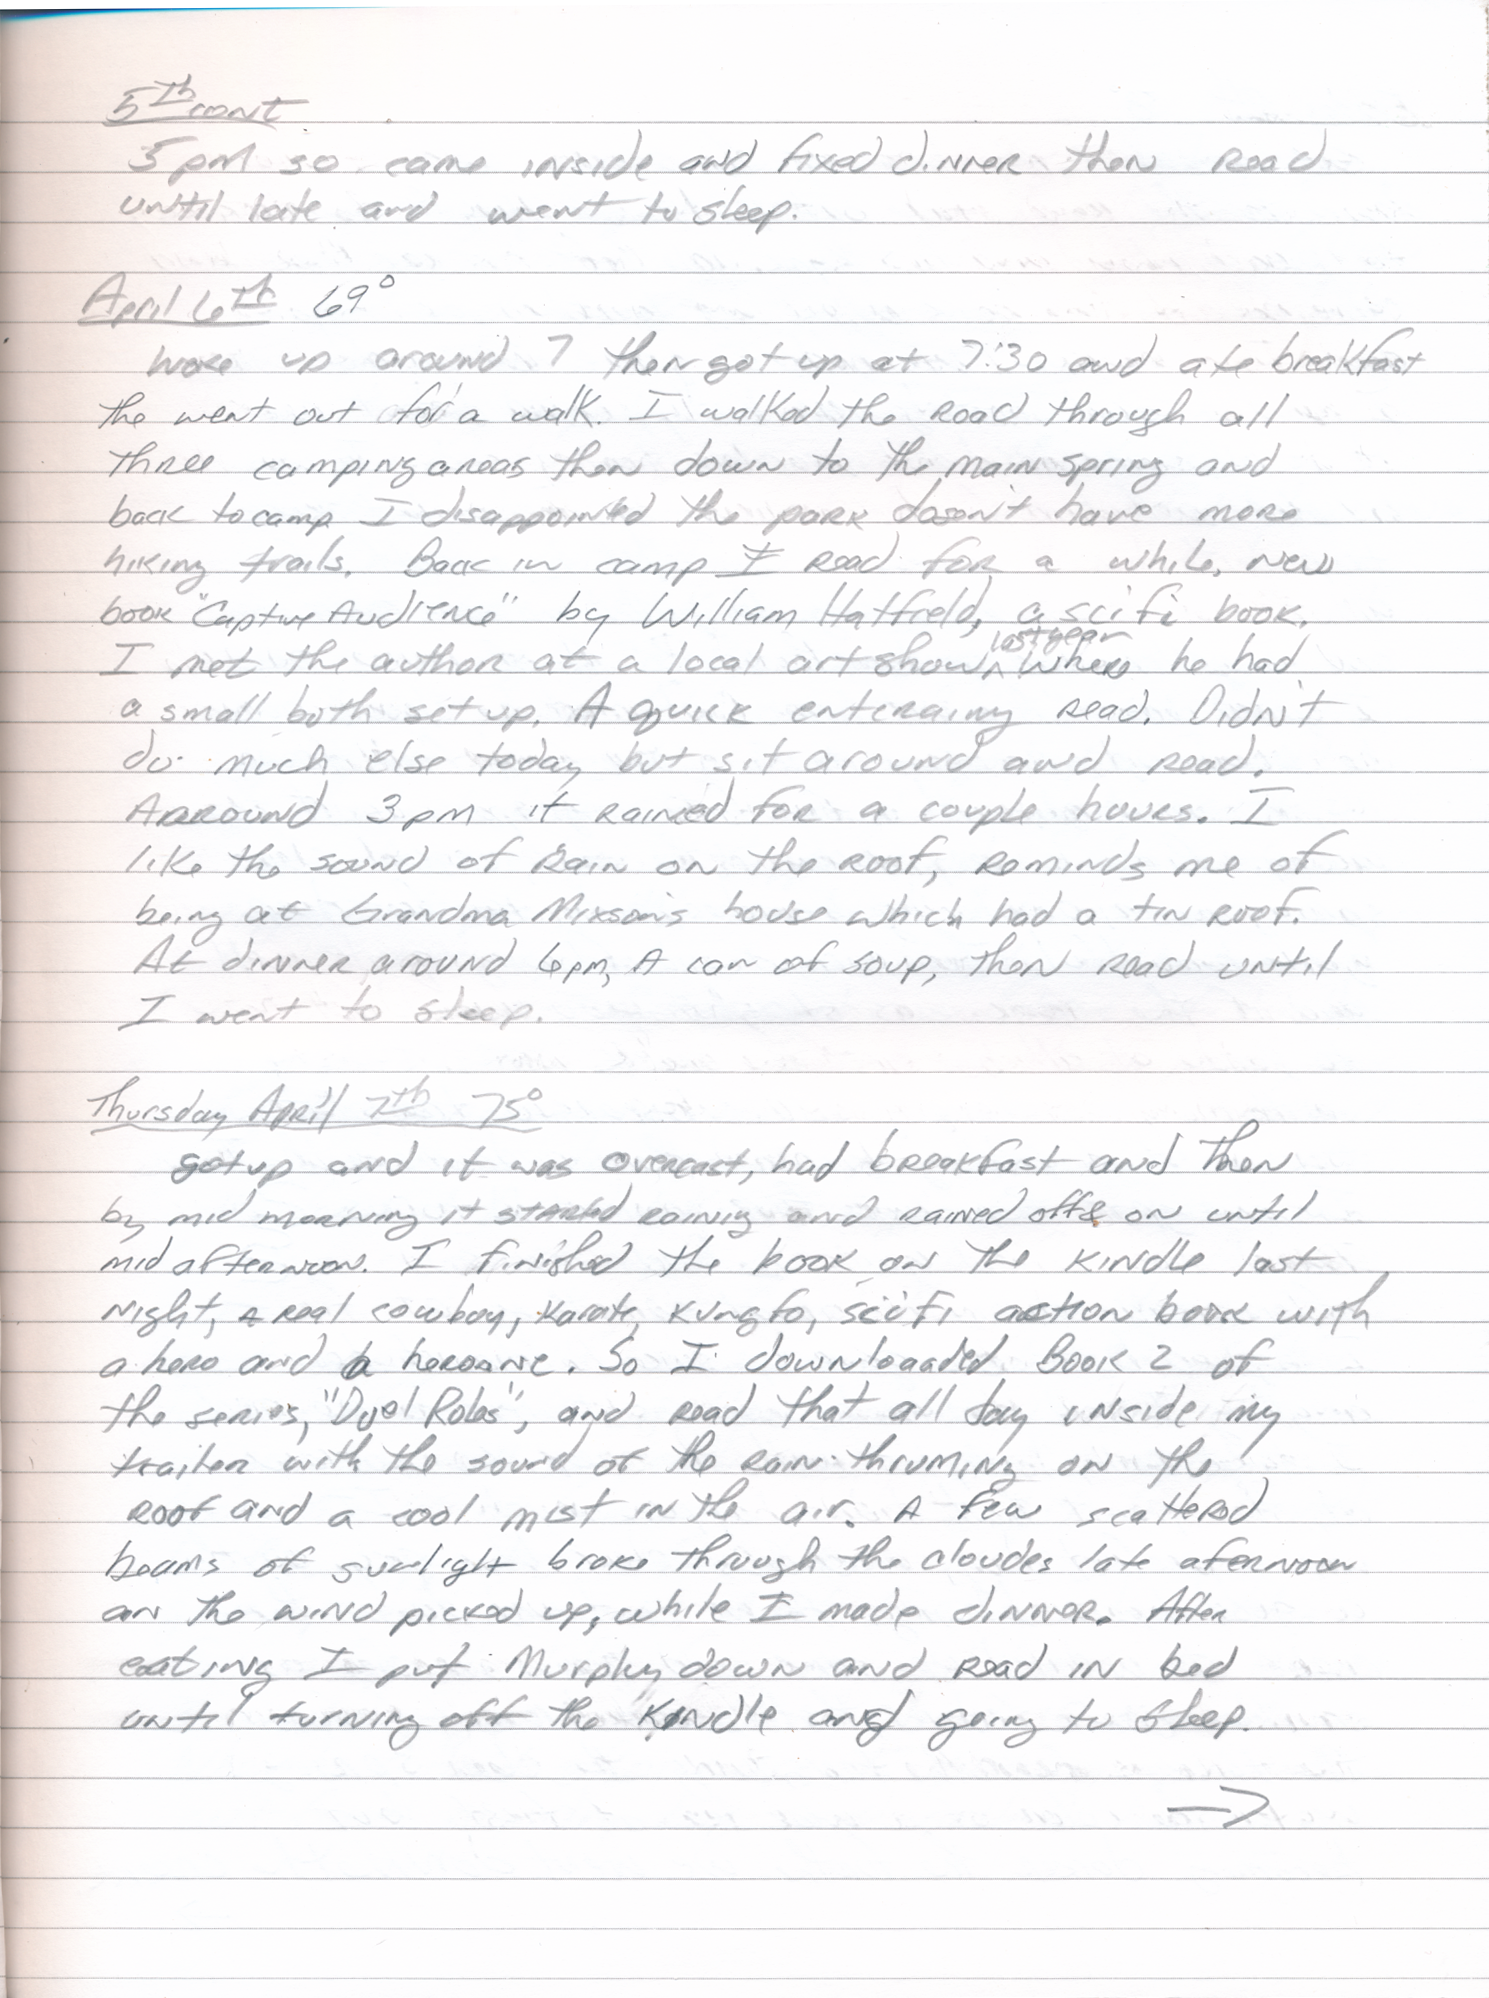 5th cont
5 pm so came inside and fixed dinner then read
until late and went to sleep.
April 6th 69°
Woke up around 7 then got up at 7:30 and ate breakfast
the went out for a walk. I walked the road through all
three camping areas then down to the main spring and
back to camp I disappointed the park doesn't have more
hiking trails. Back in camp I read for a while, new
book "Captive Audience" by William Hatfield, a sci fi book.
I met the author at a local art show last year where he had
a small both set up. A quick enteraing read. Didn't
do much else today but sit around and read.
Arround 3 pm it rained for a couple hours. I
like the sound of rain on the roof, reminds me of
being at Grandma Mixson's house which had a tin roof.
At dinner around 6pm, A can of soup, then read until
I went to sleep.
Thursday April 7th 75°
got up and it was overcast, had breakfast and then
by mid morning it started rainig and rained off & on until
mid afternoon. I finished the book on the Kindle last
night, a real cowboy, Karate, Kung fo, sci fi action book with
a hero and a heroane. So I downloaded Book 2 of
the series, "Dual Roles", and read that all day inside my
trailer with the sound of the rain thruming on the
roof and a cool mist in the air. A few scattered
beams of sunlight broke through the cloudes late afernoon
an the wind picked up, while I made dinner. After
eating I put Murphy down and read in bed
until turning off the Kindle and going to sleep.
→